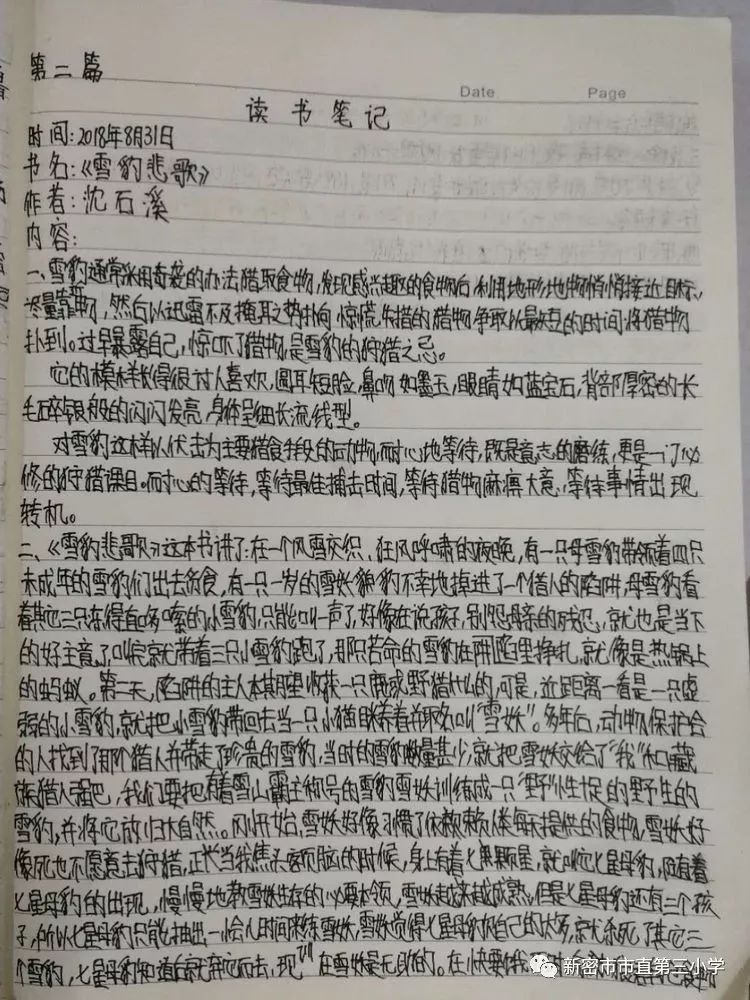 第二篇
Date Page
读书笔记
时间:2018年8月31日
书名:《雪豹悲歌》
作者:沈石溪
内容:
一、雪豹通常采用奇袭的办法猎取食物,发现感兴趣的食物后,利用地形地物悄悄接近目标,
尽量靠近,然后以迅雷不及掩耳之势扑向惊慌失措的猎物,争取以最短的时间将猎物
扑到。过早暴露自己,惊吓了猎物,是雪豹的狩猎之忌。
它的模样长得很讨人喜欢,圆耳短脸,鼻吻如墨玉,眼睛如蓝宝石,背部厚密的长
毛碎银般的闪闪发亮,身体呈细长流线型。
对雪豹这样以伏击为主要猎食手段的动物,耐心地等待,既是意志的磨练,更是一门必
修的狩猎课目。耐心的等待,等待最佳捕击时间,等待猎物麻痹大意,等待事情出现
转机。
二、《雪豹悲歌》这本书讲了:在一个风雪交织、狂风呼啸的夜晚,有一只母雪豹带领着四只
未成年的雪豹们出去觅食,有一只一岁的雪妖豹不幸地掉进了一个猎人的陷阱,母雪豹看
着其它三只冻得直哆嗦的小雪豹,只能叫一声了,好像在说孩子,别怨母亲的残忍,就也是当下
的好主意了,叫完就带着三只小雪豹跑了,那只苦命的雪豹在陷阱里挣扎,就像是热锅上
的蚂蚁。第二天,陷阱的主人本期望收获一只鹿或野猪什么的,可是,近距离一看是一只虚
弱的小雪豹,就把小雪豹带回去当一只小猫咪养着并取名叫“雪妖”。多年后,动物保护会
的人找到了那个猎人并带走了珍贵的雪豹,当时的雪豹数量甚少,就把雪妖交给了“我”和藏
族猎人强巴,我们要把有着雪山霸主称号的雪豹雪妖训练成一只“野”性十足的野生的
雪豹,并将它放归大自然。刚开始,雪妖好像习惯了依赖人类每天提供的食物,雪妖好
像死也不愿意去狩猎,正代当我焦头烂额的时候,身上有着七黑颗星,就叫它七星母豹,随着
七星母豹的出现,慢慢地教雪妖生存的必要本领,雪妖越来越成熟,但是七星母豹还有三个孩
子,所以七星母豹只能抽出一小会儿时间来练雪妖,雪妖觉得七星母豹自己的,就杀死了其它三
个雪豹,七星母豹知道后就弃它而去,现在雪妖是无助的。在快要
新密市市直第三小学